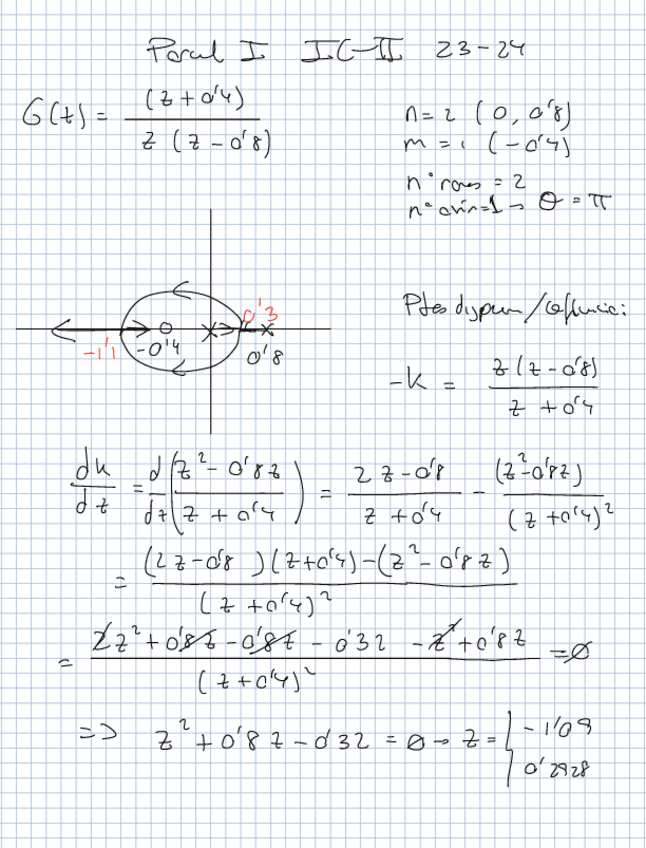 Parcial I IC-II 23-24
G(z) = (z + 0'4) / z (z - 0'8)
n = 2 (0, 0'8)
m = 1 (-0'4)
nº ramas = 2
nº asín = 1 → θ = π
-1'1 -0'4 0'3 0'8
Ptos dispersión/confluencia:
-K = z (z - 0'8) / z + 0'4
dk/dz = d/dz (z² - 0'8z / z + 0'4) = 2z - 0'8 / z + 0'4 - (z² - 0'8z) / (z + 0'4)²
= (2z - 0'8)(z + 0'4) - (z² - 0'8z) / (z + 0'4)²
= 2z² + 0'8z - 0'8z - 0'32 - z² + 0'8z / (z + 0'4)² = 0
=> z² + 0'8z - 0'32 = 0 → z = { -1'09
0'2928